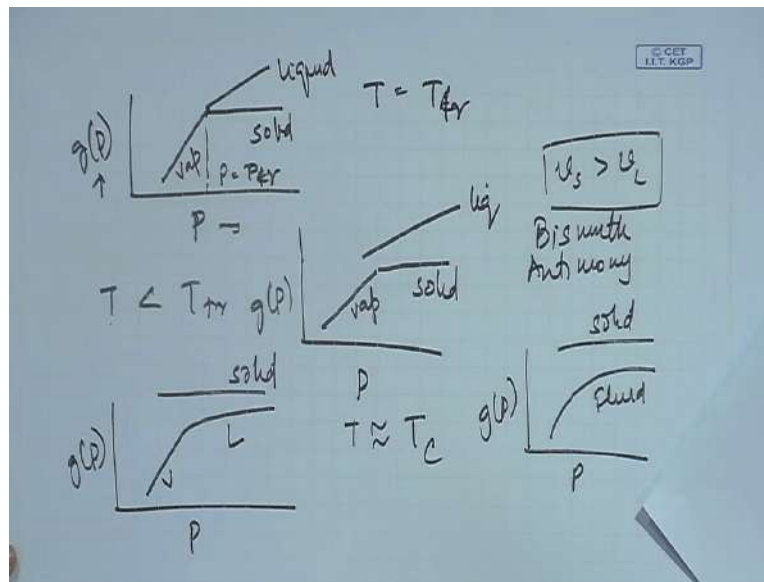 © CET
I.I.T. KGP
liquid
T = Ttr
g(P)
↑
solid
vap
P = Ptr
P →
vs > vL
Bismuth
Antimony
liq
T < Ttr
g(P)
vap
solid
P
solid
g(P)
V
L
P
T ≈ TC
solid
g(P)
fluid
P